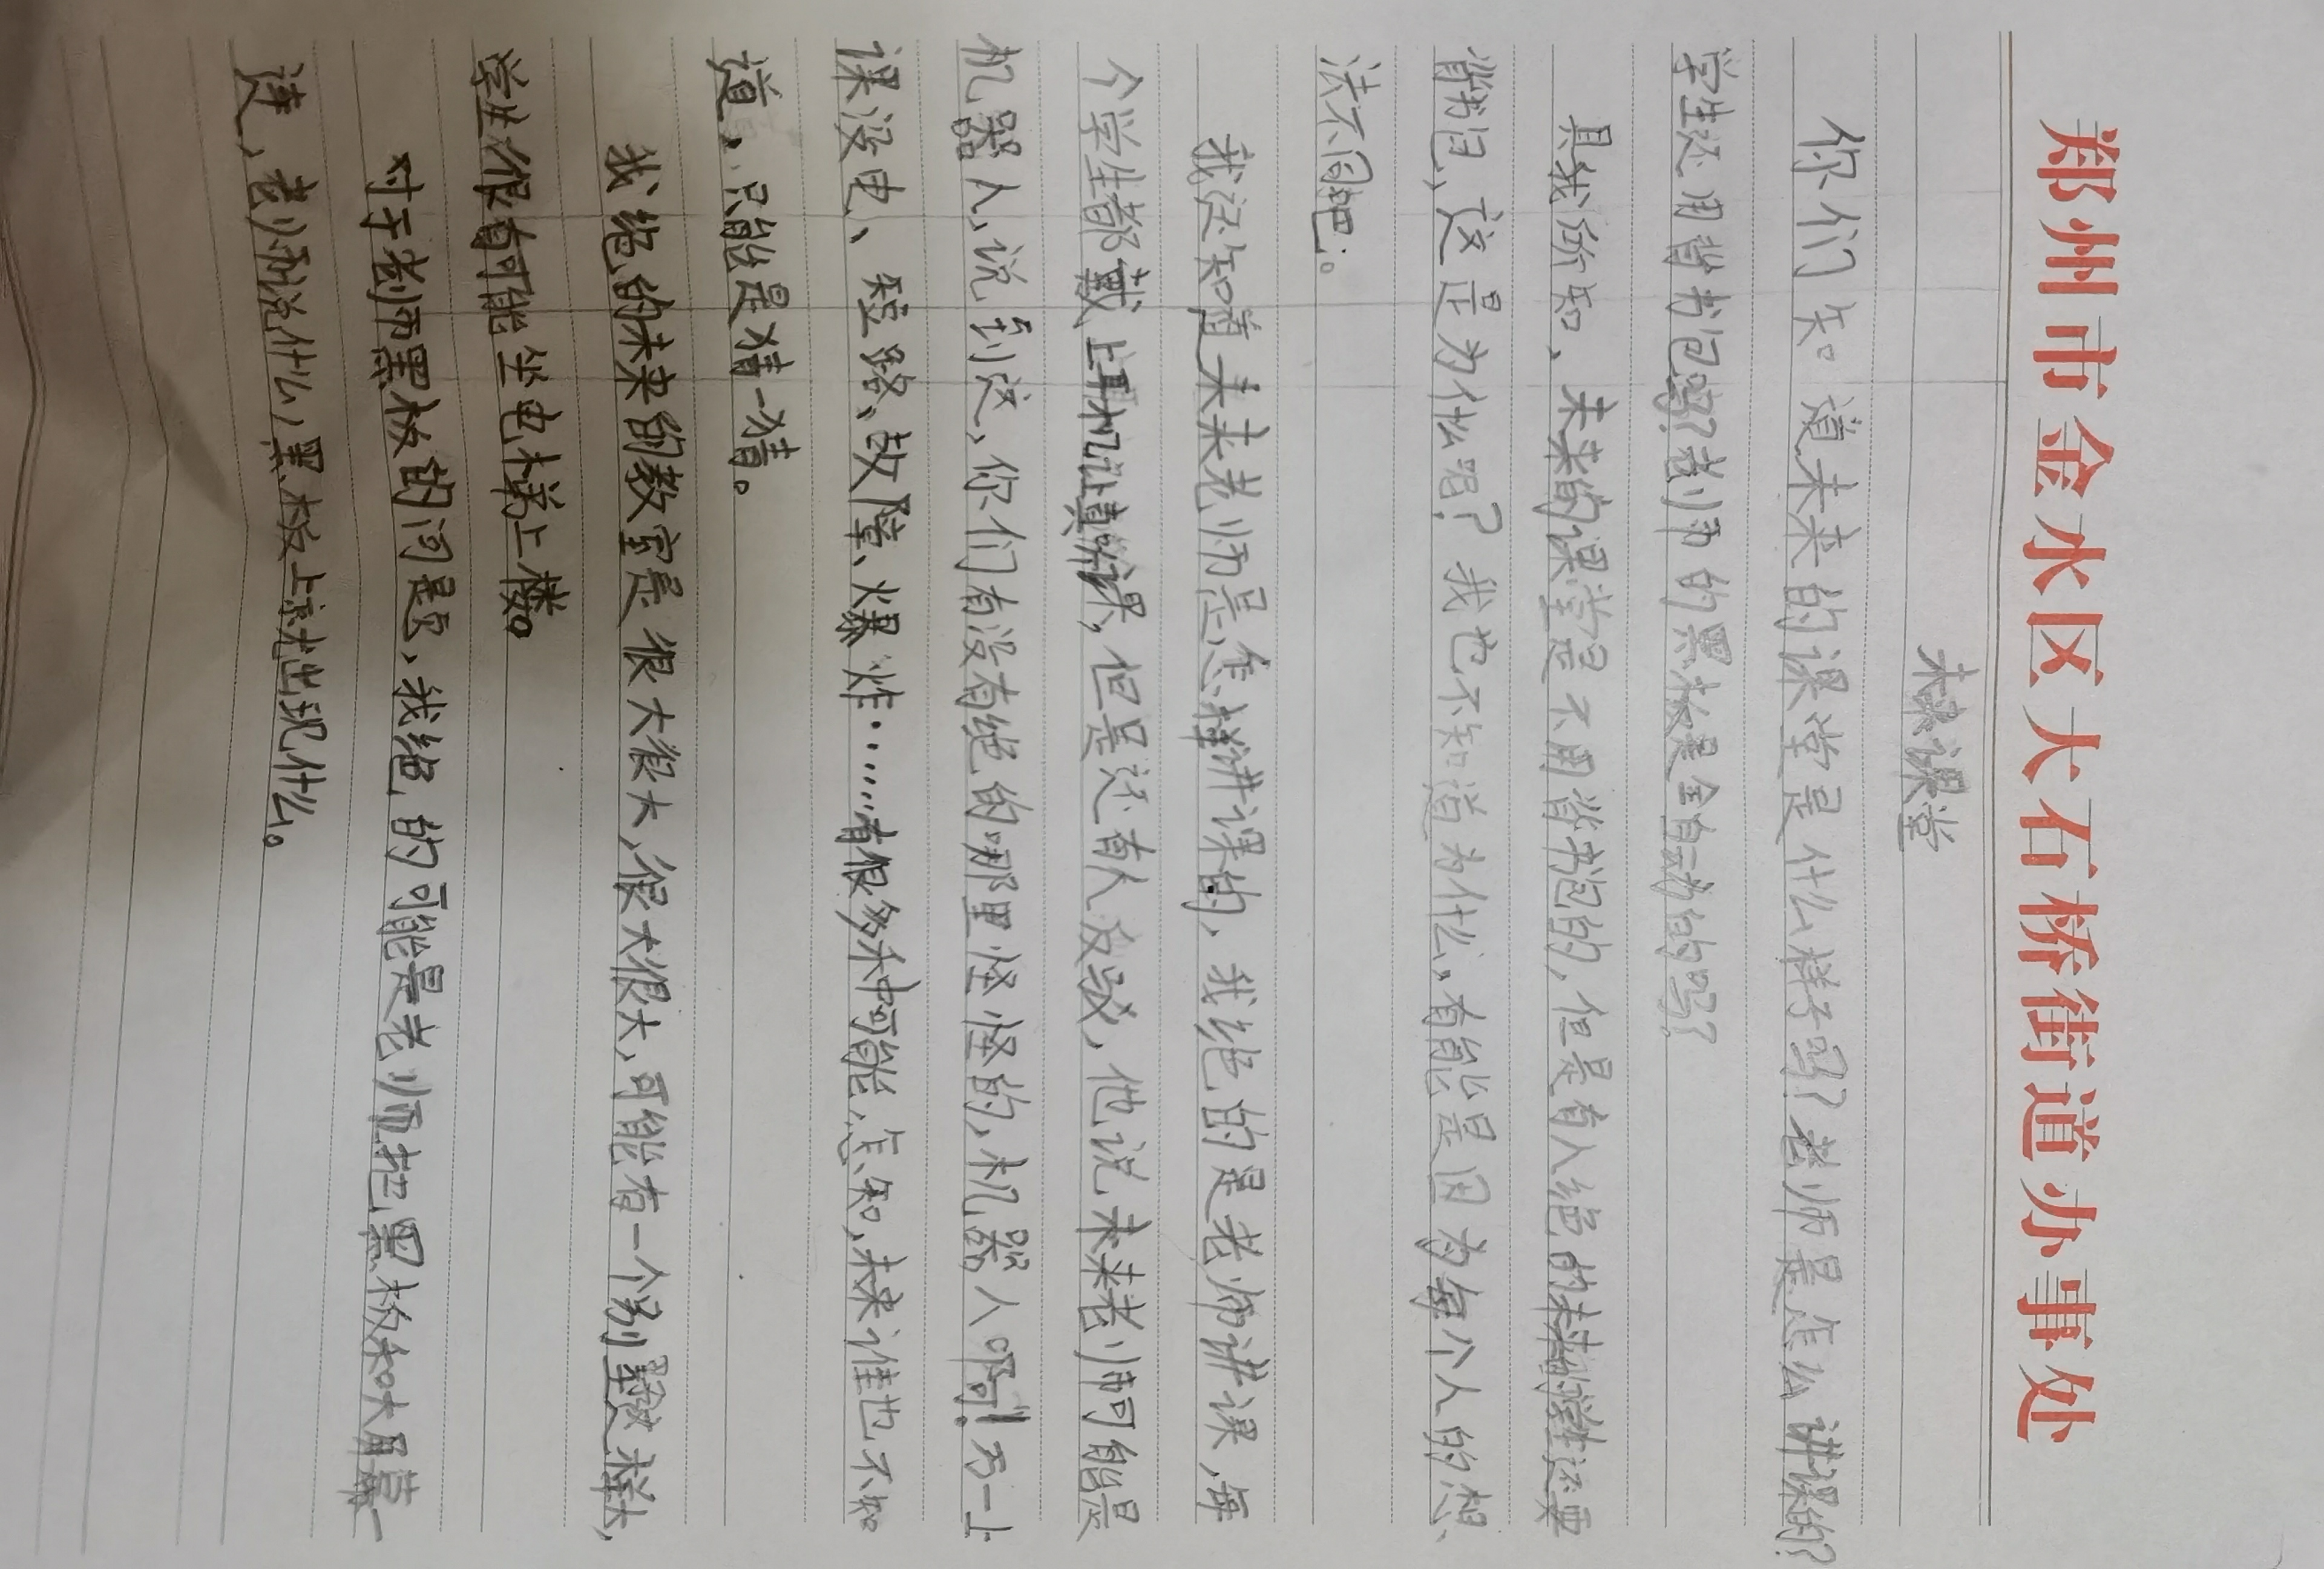 郑州市金水区大石桥街道办事处
未来课堂
你们知道未来的课堂是什么样子吗？老师是怎么讲课的？
学生还用背书包吗？老师的黑板是全自动的吗？
具我所知、未来的课堂是不用背书包的，但是有人绝的未来的学生还要
背书包，这是为什么呢？我也不知道为什么，有能是因为每个人的想
法不同吧。
我还知道未来老师是怎样讲课的，我绝的是老师讲课，每
个学生都戴上耳机认真听课，但是还有人反驳，他说未来老师可能是
机器人，说到这，你们有没有绝的哪里怪怪的，机器人啊！万一上
课没电、短路、故障、爆炸……有很多种可能，怎知，未来谁也不知
道，只能是猜一猜。
我绝的未来的教室是很大很大，很大很大，可能有一个别墅这样大，
学生很有可能坐电梯上楼。
对于老师黑板的问是，我绝的可能是老师把黑板和大屏幕一
连，老师说什么，黑板上就出现什么。